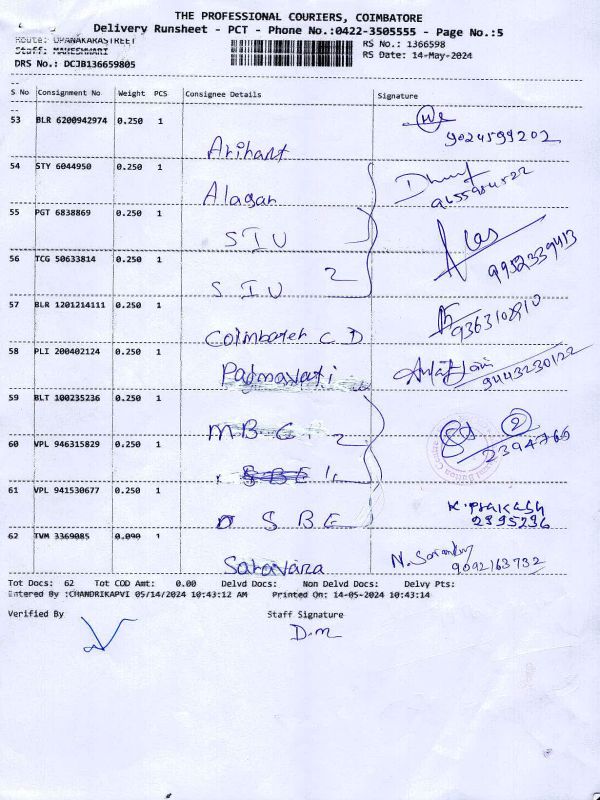 THE PROFESSIONAL COURIERS, COIMBATORE
Delivery Runsheet - PCT - Phone No.:0422-3505555 - Page No.:5
Route: DHANAKARASTREET
RS No.: 1366598
Staff: MAHESHWARI
RS Date: 14-May-2024
DRS No.: DCJB136659805
S No Consignment No Weight PCS Consignee Details Signature
53 BLR 6200942974 0.250 1 Arihant 9024599202
54 STY 6044950 0.250 1 Alagar 9655984522
55 PGT 6838869 0.250 1 S I U
56 TCG 50633814 0.250 1 S I U 2 9952339413
57 BLR 1201214111 0.250 1 Coimbater C D 9363102910
58 PLI 200402124 0.250 1 Padmavati 9443230122
59 BLT 100235236 0.250 1 M B C 2
60 VPL 946315829 0.250 1 2 2394766
61 VPL 941530677 0.250 1 S B E K. Prakash 2395296
62 TVM 3369085 0.090 1 Saravana 9092163732
Tot Docs: 62 Tot COD Amt: 0.00 Delvd Docs: Non Delvd Docs: Delvy Pts:
Entered By :CHANDRIKAPVI 05/14/2024 10:43:12 AM Printed On: 14-05-2024 10:43:14
Verified By Staff Signature
D.M